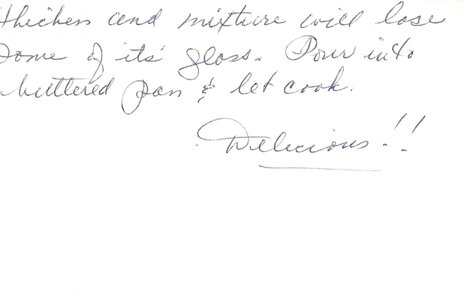 thickens and mixture will lose
some of its' gloss. Pour into
buttered pan & let cook.
Delicious!!